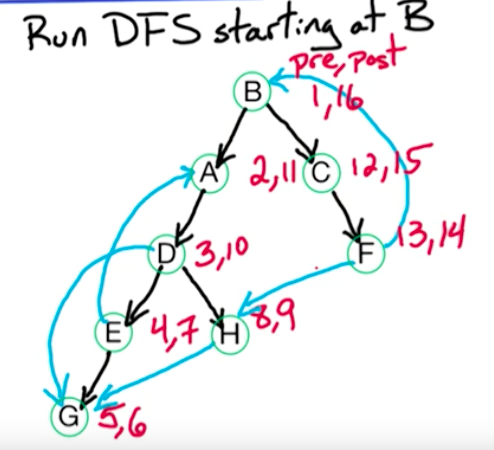 Run DFS starting at B
pre, post
B
1,16
A
2,11
C
12,15
D
3,10
F
13,14
E
4,7
H
8,9
G
5,6